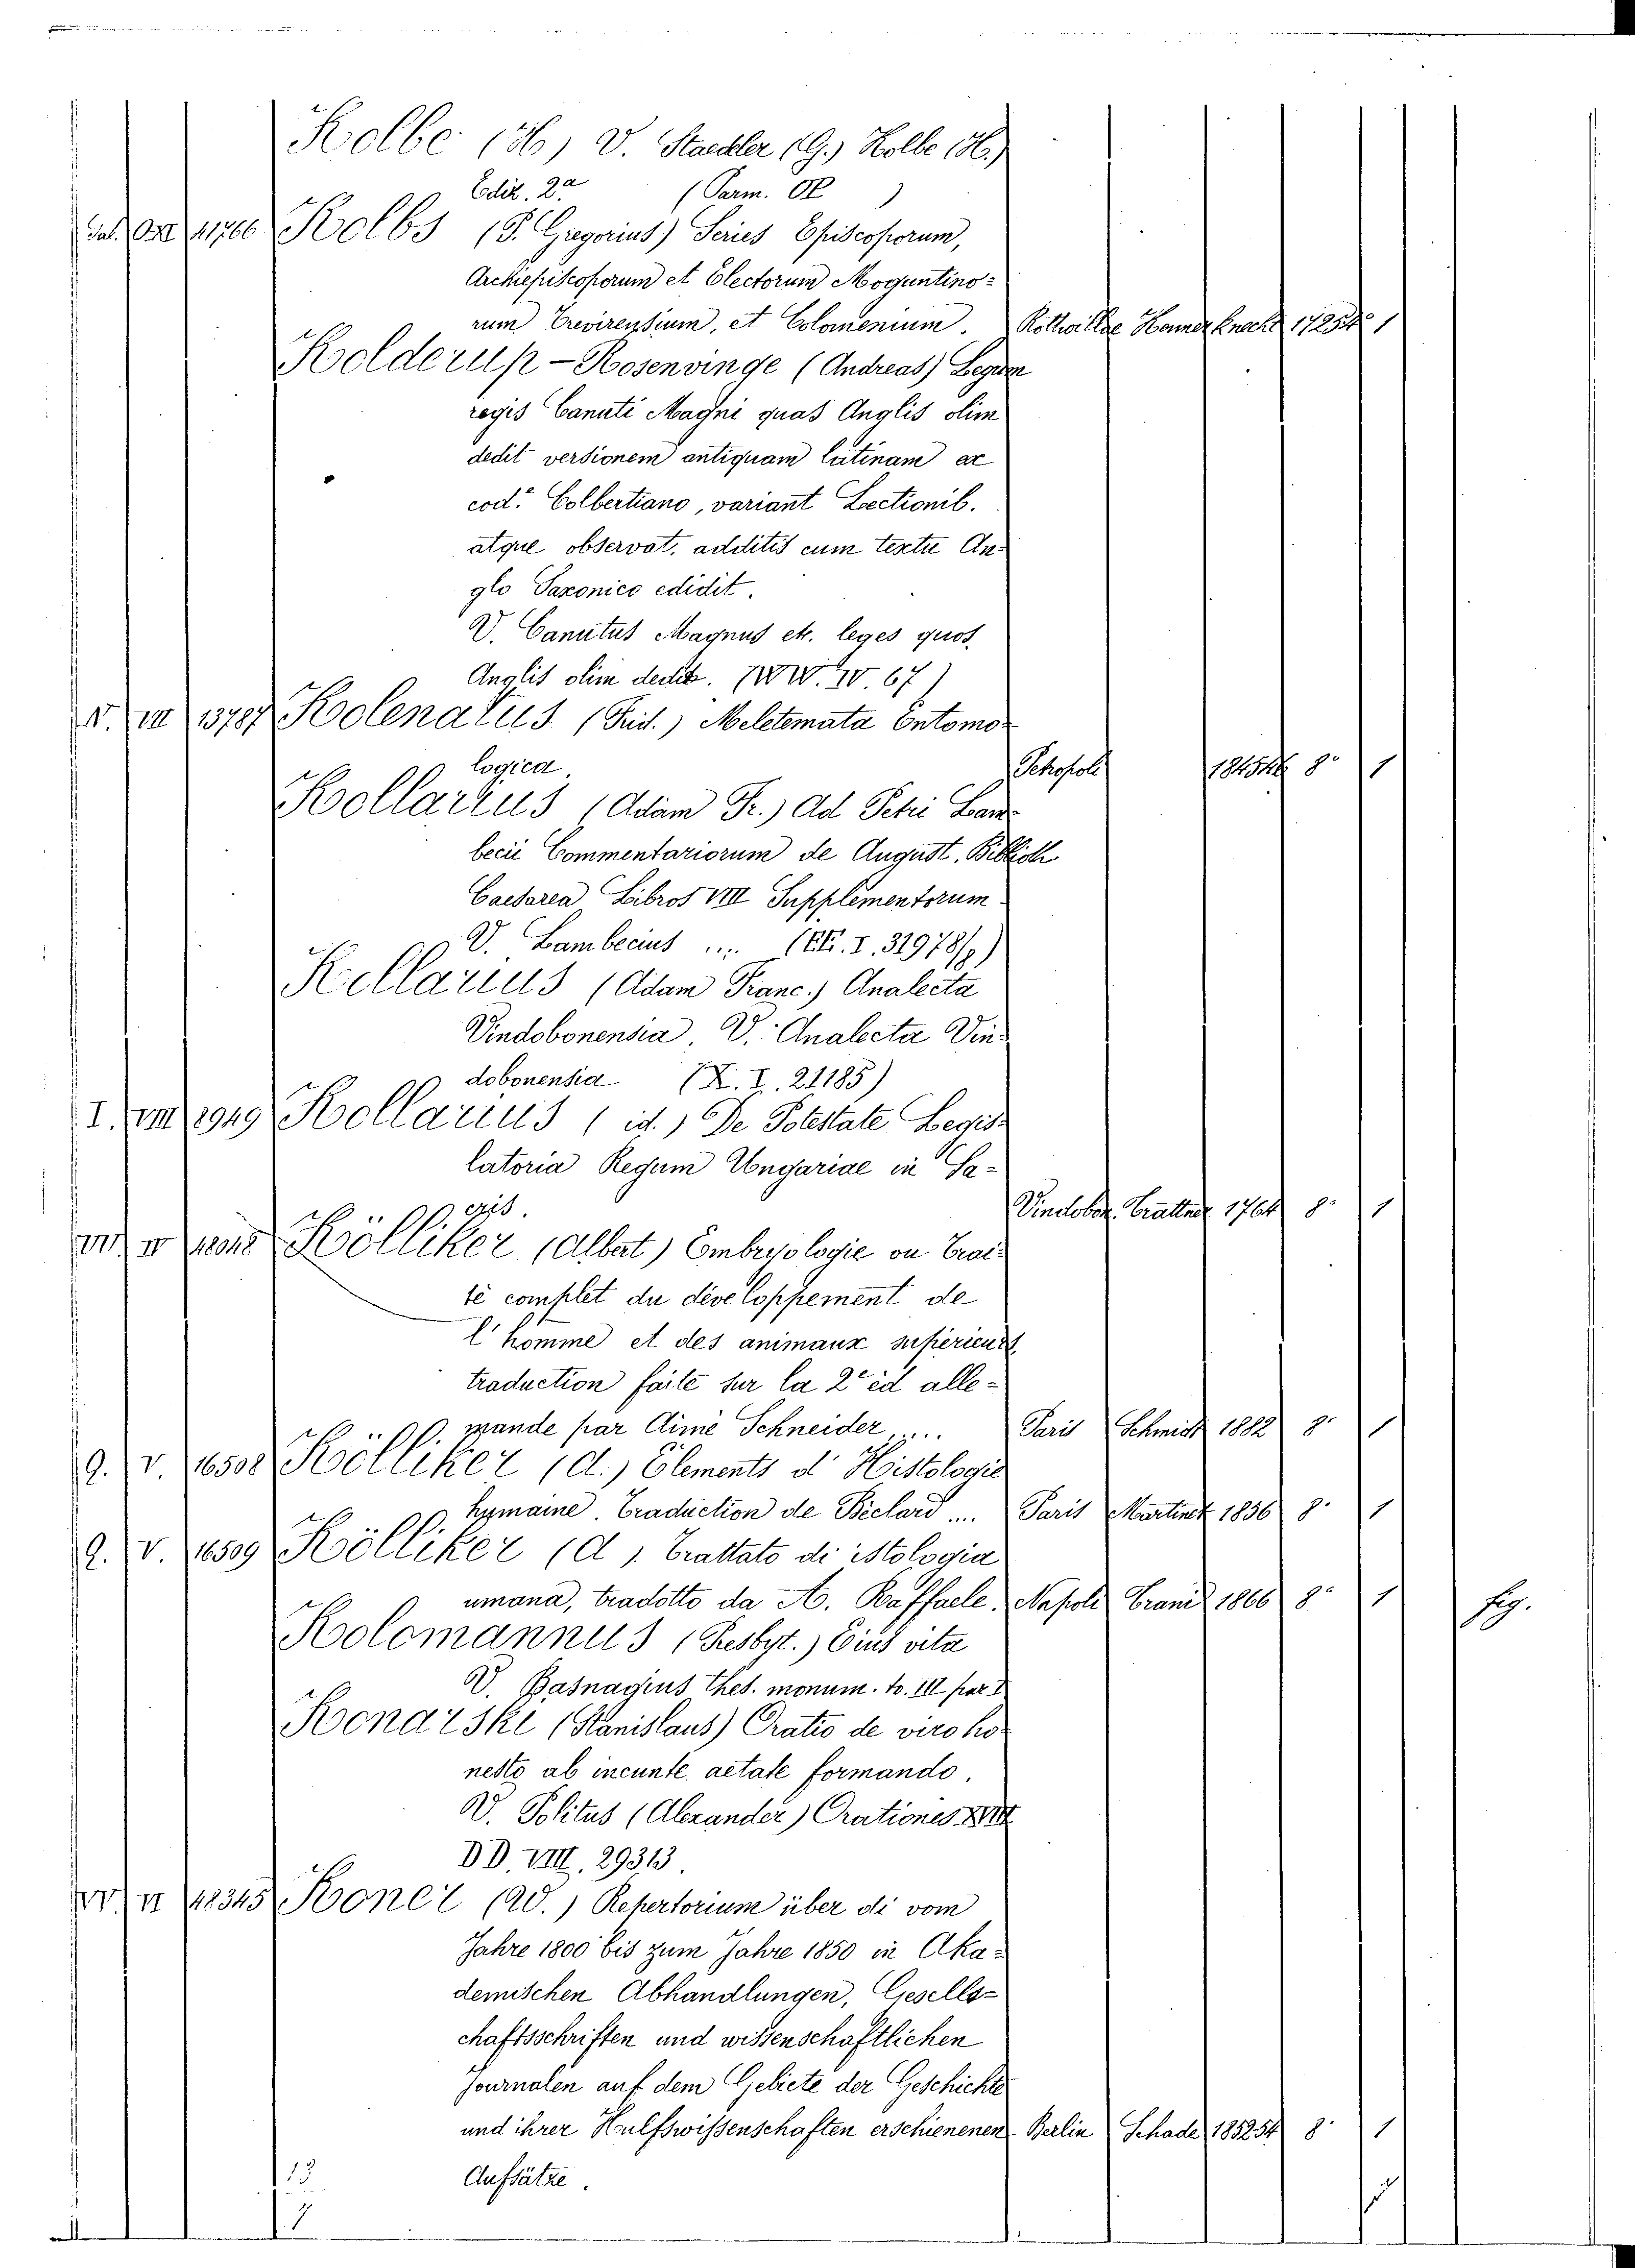 Kolbe (H) V. Staedler (G.) Kolbe (H.)
Edit. 2a (Parm. OR )
41766 Kolbs (P. Gregorius) Series Episcoporum,
Archiepiscoporum et Electorum Moguntino-
rum Trevirensium, et Coloneniumm. Henner Knecht 1725 4° 1
Kolderup-Rosenvinge (Andreas) Legum
regis Canuti Magni quas Anglis olim
dedit versionem antiquam latinam ex
cod.e Colbertiano, variant Lectionib.
atque observat, additis cum textu An-
glo Saxonico edidit.
V. Canutus Magnus etc. leges quos
Anglis olim dedit. (WW. IV. 67)
V. VIII 13787 Kolenatus (Frid.) Meletemata Entomo-
logica. Petropoli 184546 8° 1
Kollarius (Adam Fr.) Ad Petri Lam-
becii Commentariorum de August. Biblioth
Caesarea Libros VIII Supplementorum
V. Lambecius .... (EE. I. 31978/9)
Kollarius (Adam Franc.) Analecta
Vindobonensia. V. Analecta Vin-
dobonensia (X. I. 21185)
I. VIII 1949 Kollarius (id.) De Potestate Legis-
latoria Regum Ungariae in Sa-
cris. Vindobon. Trattner 1764 8° 1
Kölliker (Albert) Embryologie ou Trai-
té complet du développement de
l'homme et des animaux supérieurs,
traduction faite sur la 2e éd alle-
mande par Aimé Schneider .... Paris Schmidt 1882 8° 1
Q. V 16508 Kölliker (A.) Elements d' Histologie
humaine. Traduction de Béclard .... Paris Martinet 1856 8° 1
Q. V. 16509 Kölliker (A). Trattato di istologia
umana, tradotto da A. Raffaele. Napoli Trani 1866 8° 1 fig.
Kolomannus (Presbyt.) Eius vita
V. Basnagius Thes. monum. to. III par I
Konarski (Stanislaus) Oratio de viro ho-
nesto ab incunte aetate formando.
V. Politus (Alexander) Orationes XVIII
DD. VIII. 29313.
48345 Koner (W.) Repertorium über di vom
Jahre 1800 bis zum Jahre 1850 in Aka-
demischen Abhandlungen, Gesells-
chaftsschriften und wissenschaftlichen
Journalen auf dem Gebiete der Geschichte
und ihrer Hulfswissenschaften erschienenen Berlin Schade 185254 8° 1
13 Aufsätze.
7